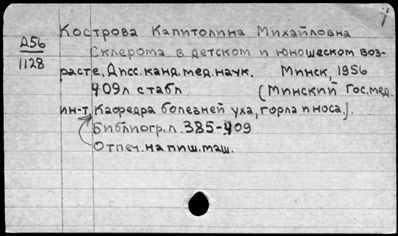 Кострова Капитолина Михайловна
Д56
1128
Склерома в детском и юношеском воз-
расте. Дисс. канд. мед. наук. Минск, 1956
409л с табл (Минский Гос. мед.
ин-т, Кафедра болезней уха, горла и носа.).
Библиогр. л. 385-409
Отпеч. на пиш. маш.